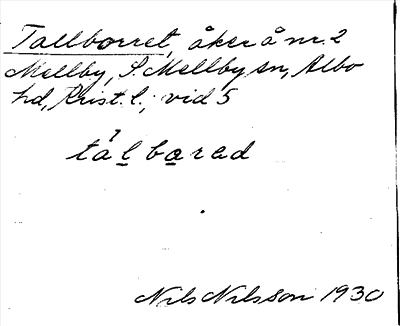 Tallborret, åker å nr 2
Mellby, S. Mellby sn, Albo
hd, Krist. l., vid 5
tálbɑred
Nils Nilsson 1930